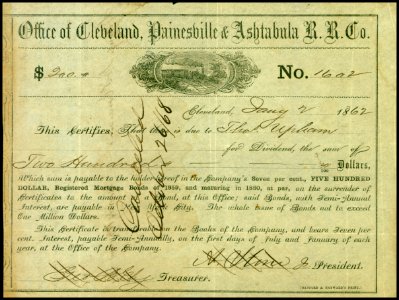 Office of Cleveland, Painesville & Ashtabula R. R. Co.
$ 200.00 No. 1602
Cleveland, Jany 2 1862
This Certifies, That there is due to Thos Upham
for Dividend, the sum of
Two Hundred Dollars,
Which sum is payable to the holder hereof in the Company's Seven per cent., FIVE HUNDRED
DOLLAR, Registered Mortgage Bonds of 1859, and maturing in 1880, at par, on the surrender of
Certificates to the amount of a Bond, at this Office; said Bonds, with Semi-Annual
Interest, are payable in New York City. The whole issue of Bonds not to exceed
One Million Dollars.
This Certificate is transferable on the Books of the Company, and bears Seven per
cent. Interest, payable Semi-Annually, on the first days of July and January of each
year, at the Office of the Company.
President.
Treasurer.